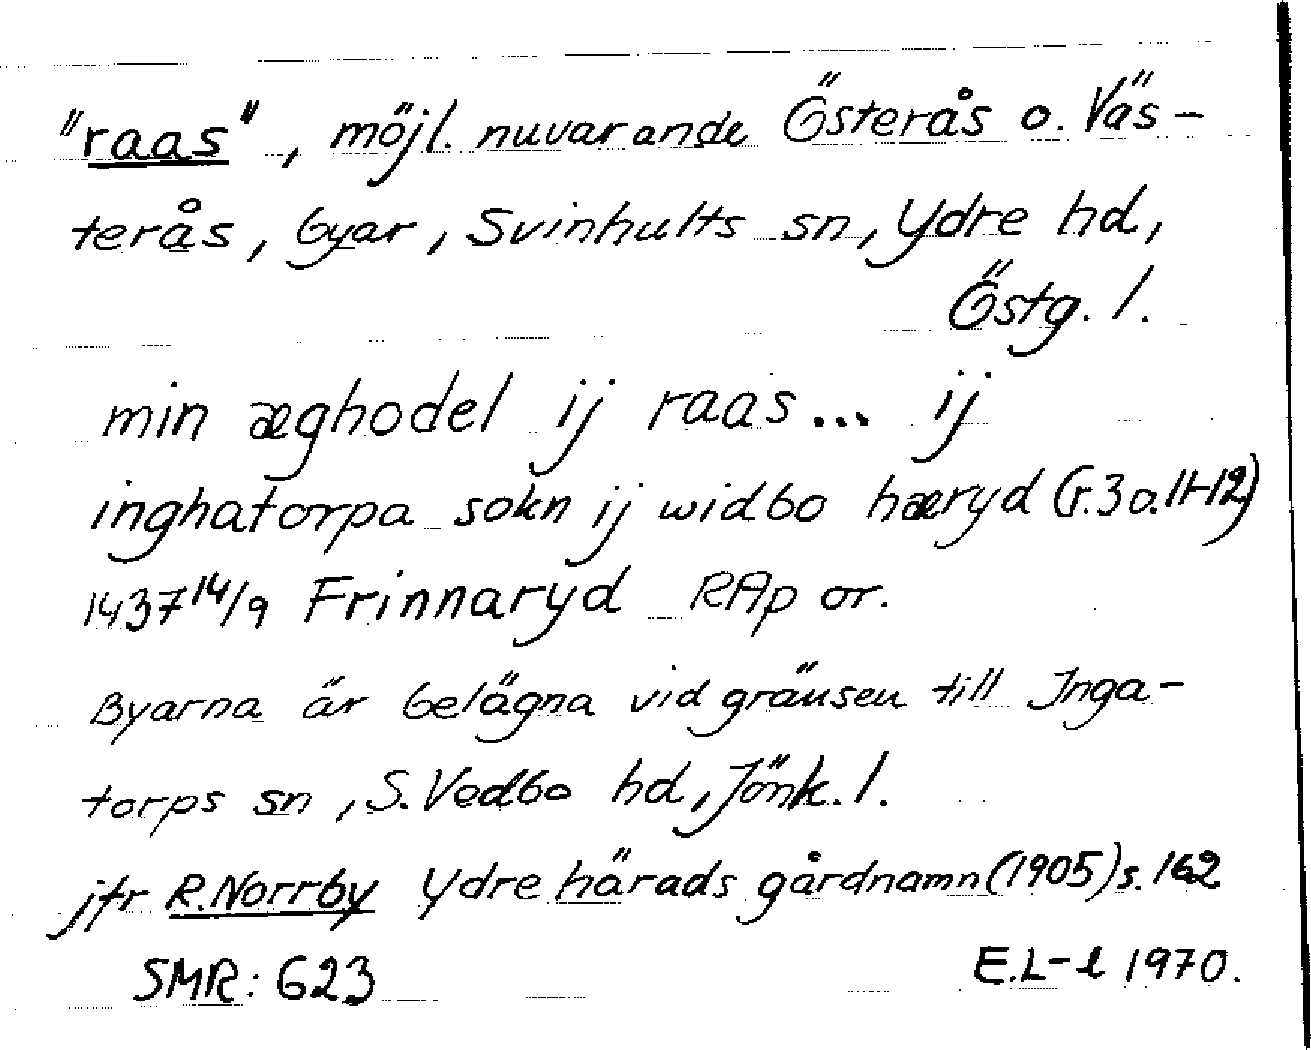 "raas", möjl. nuvarande Österås o. Väs-
terås, byar, Svinhults sn, Ydre hd,
Östg. l.
min æghodel ij raas... ij
inghatorpa sokn ij widbo hæryd (r.3 o.11-12)
1437 14/9 Frinnaryd RAp or.
Byarna är belägna vid gränsen till Inga-
torps sn, S. Vedbo hd, Jönk. l.
jfr R. Norrby Ydre härads gårdnamn (1905) s. 162
SMR: 623 E.L-l 1970.